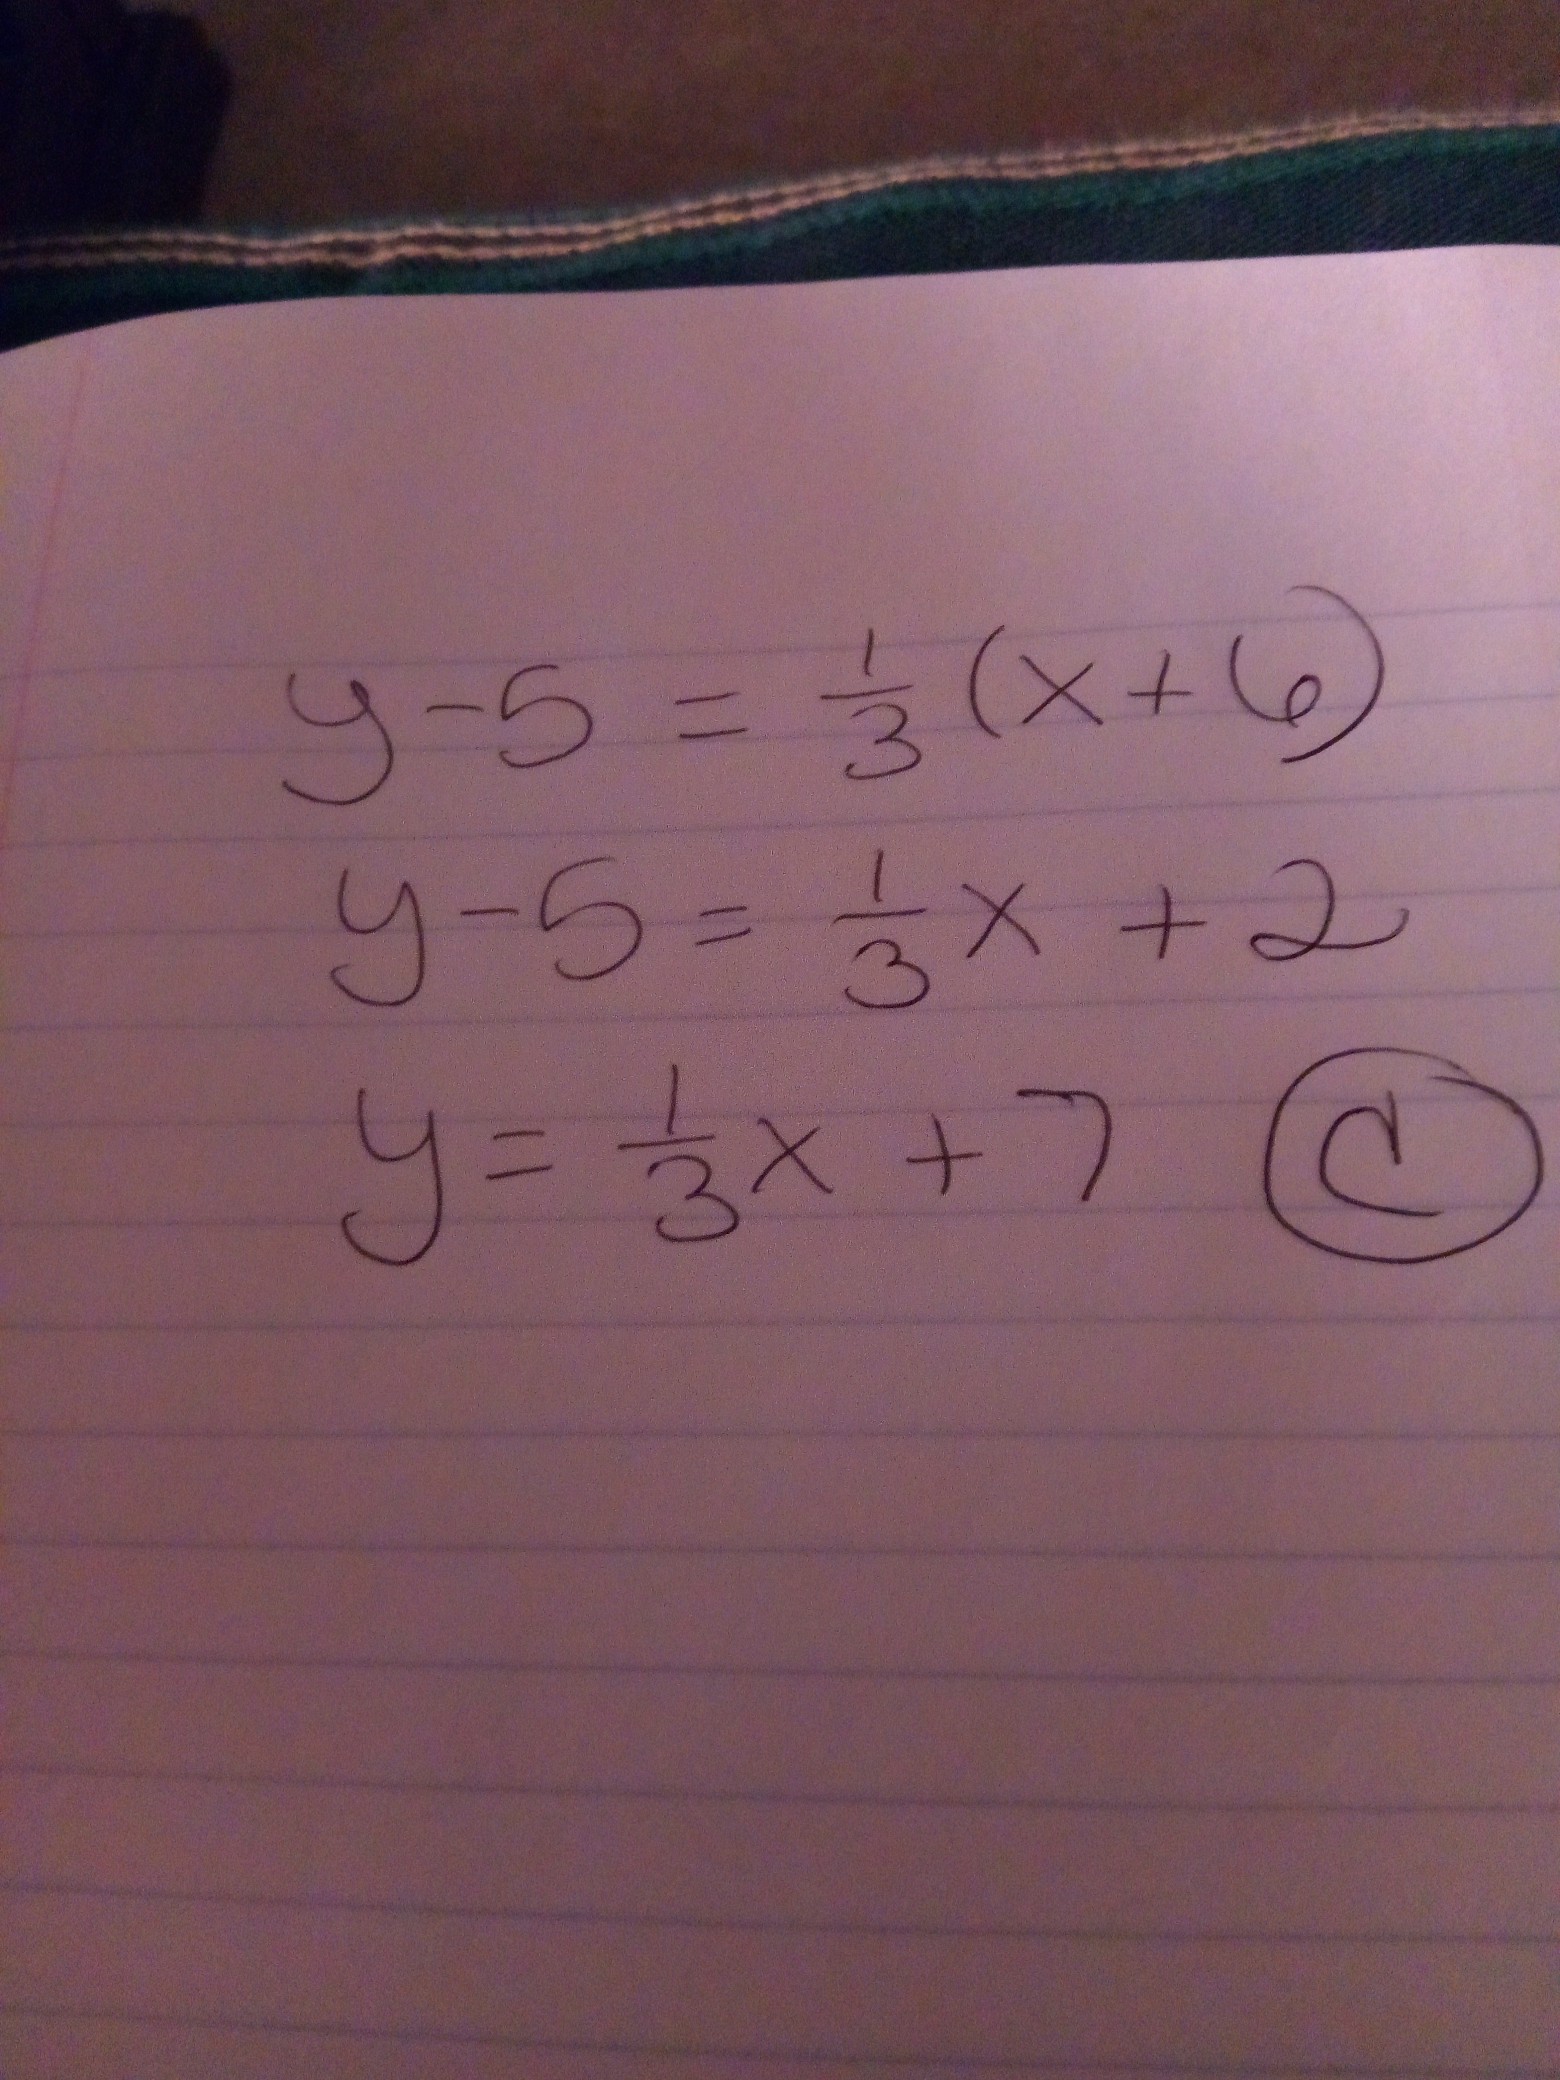 y-5 = 1/3 (x+6)
y-5 = 1/3 x + 2
y = 1/3 x + 7 C